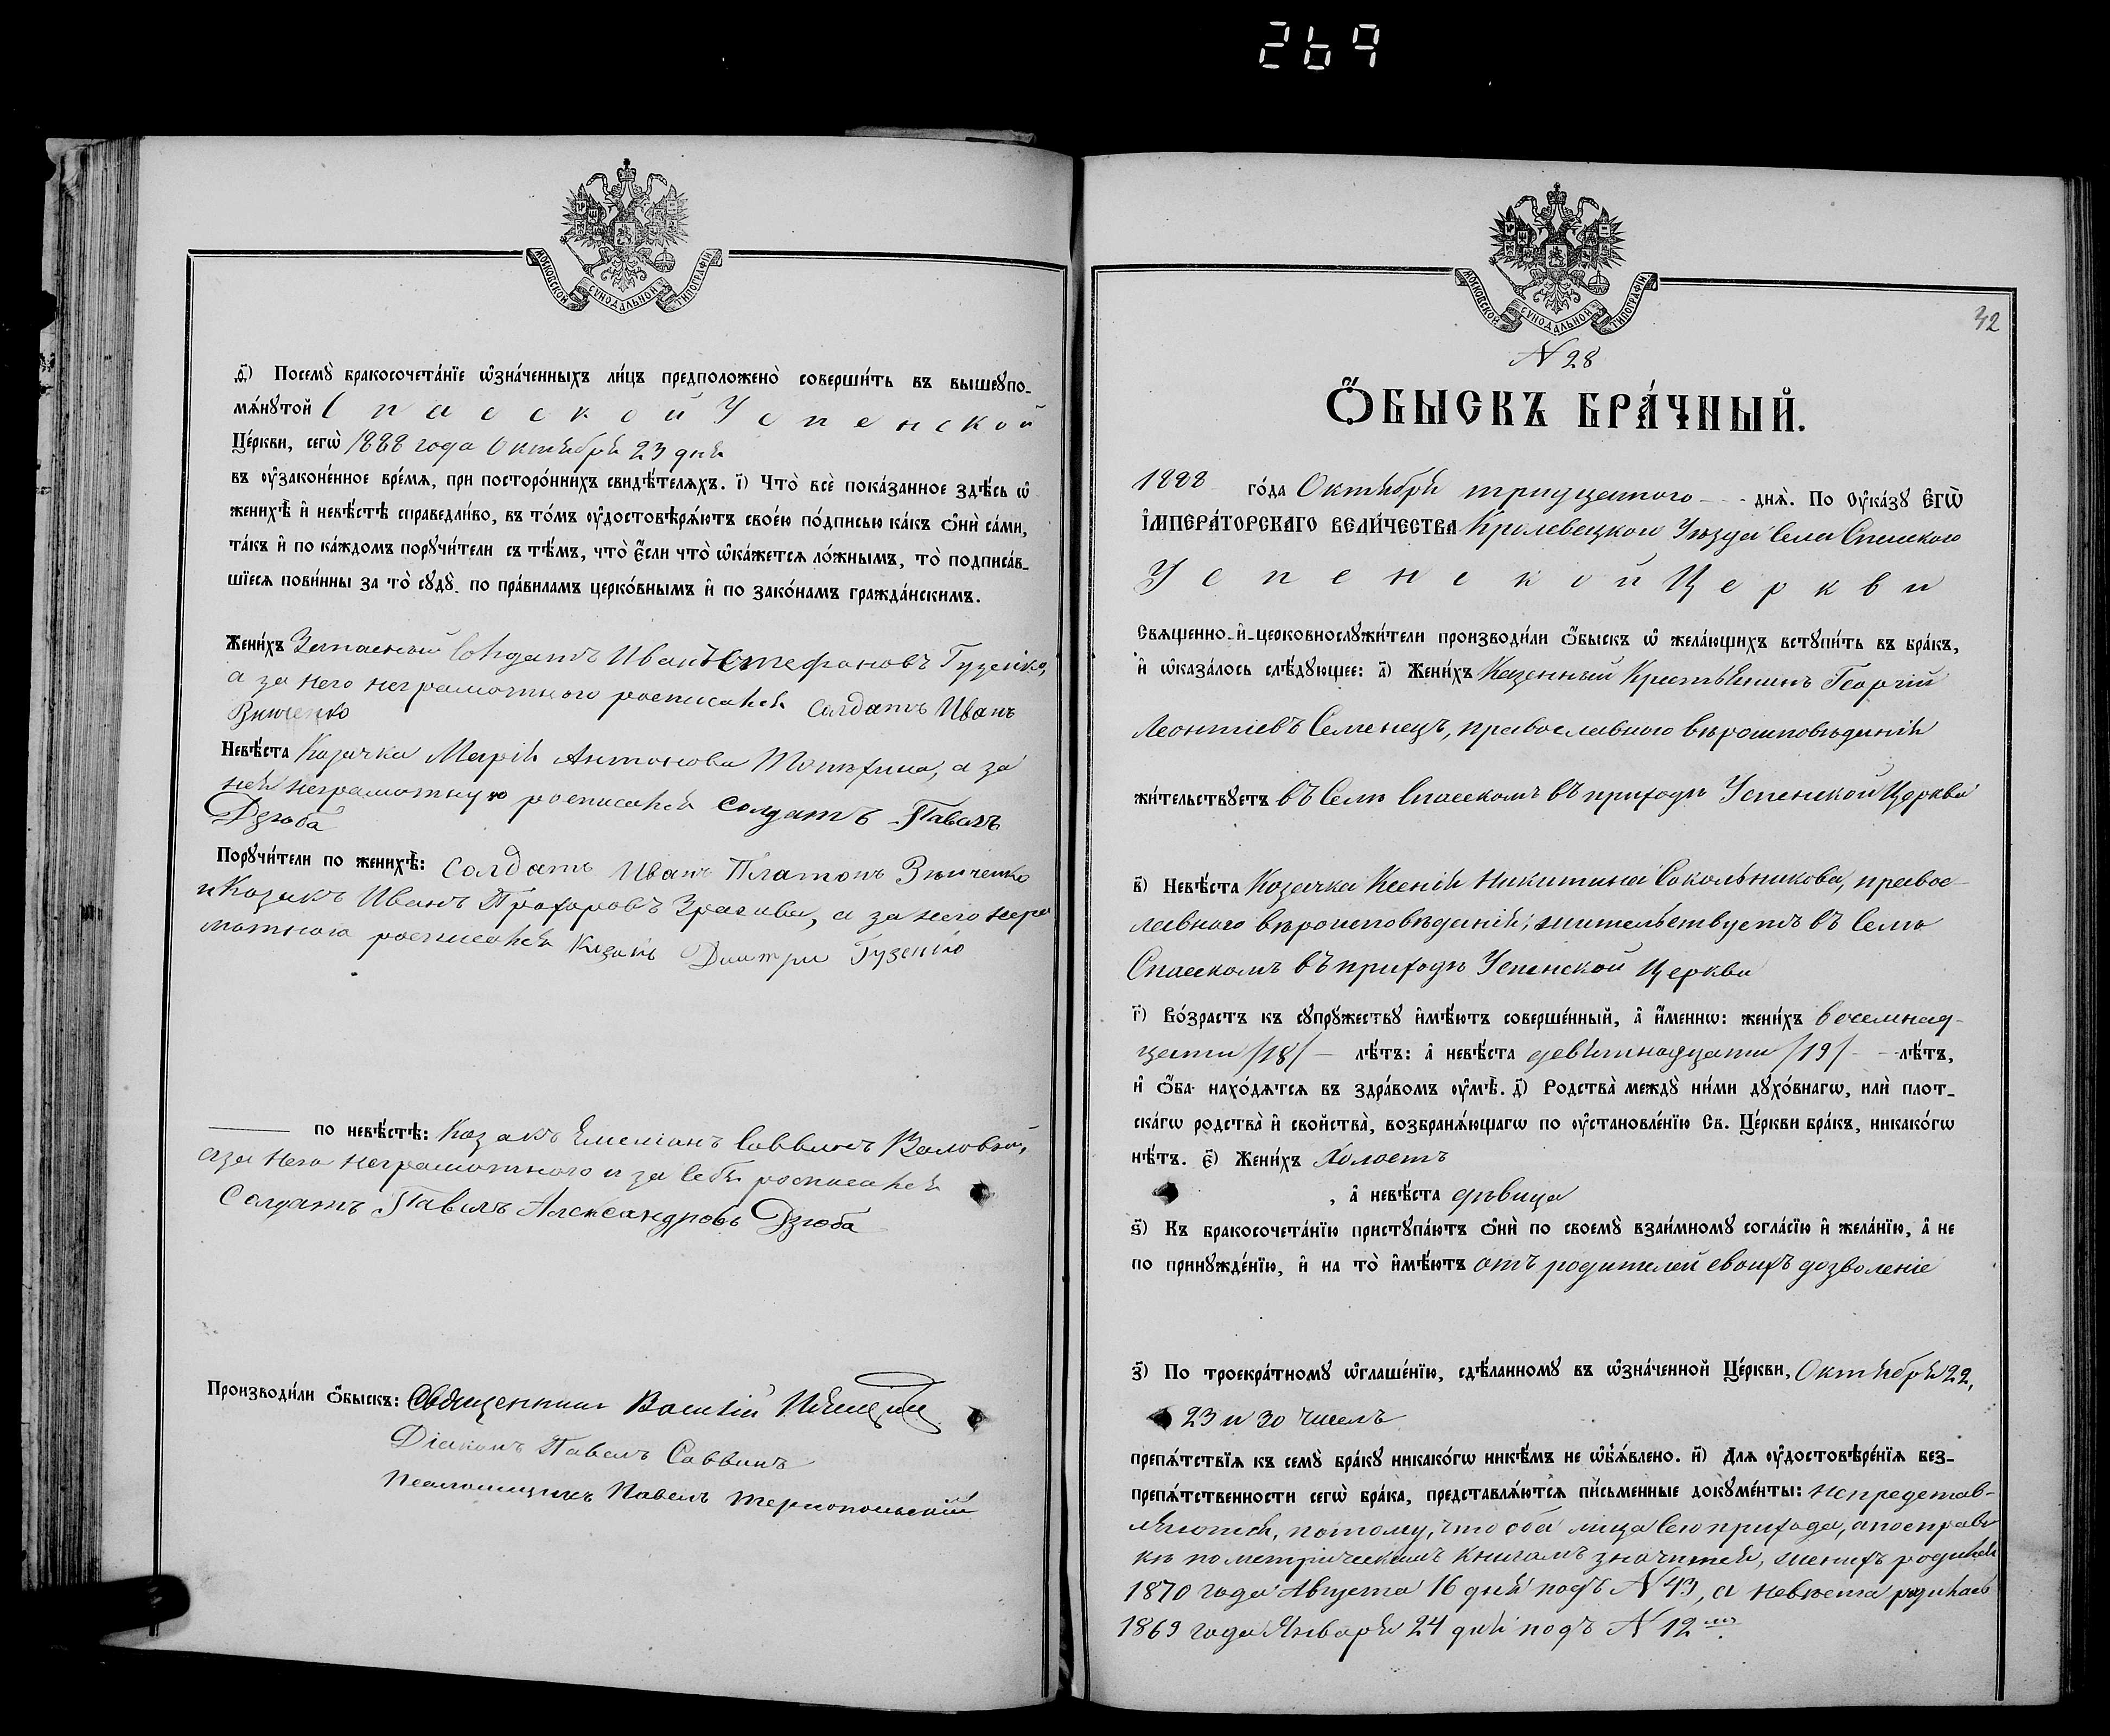 269
МОСКОВСКОЙ СУНОДАЛЬНОЙ ТИПОГРАФІИ
ѳ҃) Посемꙋ̀ бракосочета́нїе ѡ҆зна́ченныхъ ли́цъ предположено̀ соверши́ть въ вышеꙋпо-
мѧ́нꙋтой Спасской Успенской
Це́ркви, сегѡ̀ 1888 года Октября 23 дня
въ ᲂу҆законе́нное вре́мѧ, при посторо́ннихъ свидѣ́телѧхъ. і҃) Что̀ всѐ пока́занное здѣ́сь ѡ҆
женихѣ̀ и҆ невѣ́стѣ справедли́во, въ то́мъ ᲂу҆достовѣрѧ́ютъ свое́ю по́дписью ка́къ ѻ҆нѝ са́ми,
та́къ и҆ по ка́ждомъ порꙋчи́тели съ тѣ́мъ, что̀ є҆́сли что̀ ѡ҆ка́жетсѧ ло́жнымъ, то̀ подписа́в-
шїесѧ пови́нны за то̀ сꙋдꙋ̀ по пра́виламъ церко́внымъ и҆ по зако́намъ гражда́нскимъ.
Жени́хъ Запасный Солдатъ Иванъ Стефановъ Гузенко,
а за него неграмотного росписался Солдатъ Иванъ
Зинченко
Невѣ́ста Козачка Марія Антонова, а за
нея неграмотную росписался Солдатъ Павелъ
Дзюба
Порꙋчи́тели по женихѣ̀: Солдатъ Иванъ Платонъ Зинченко
и Козакъ Иванъ Прохоровъ, а за него негра
мотного росписался Козакъ Дмитри Гузенко
по невѣ́стѣ: Козакъ Емеліанъ Саввинъ,
а за него неграмотного и за себя росписался
Солдатъ Павелъ Александровъ Дзюба
Производи́ли ѻ҆́быскъ: Священникъ Василій
Діаконъ Павелъ Саввинъ
Псаломщикъ Павелъ Тернопольскій
МОСКОВСКОЙ СУНОДАЛЬНОЙ ТИПОГРАФІИ
32
N 28
Ѻ҆́БЫСКЪ БРА́ЧНЫЙ.
1888 го́да Октября тридцатого днѧ̀. По ᲂу҆ка́зꙋ Є҆гѡ̀
І҆мпера́торскагѡ вели́чества Кролевецкой Уѣзда Села Спаского
Успенской Церкви
Свѧщенно-и҆-церковнослꙋжи́тели производи́ли ѻ҆́быскъ ѡ҆ жела́ющихъ встꙋпи́ть въ бра́къ,
и҆ ѡ҆каза́лось слѣ́дꙋющее: а҃) Жени́хъ Казенный Крестьянинъ Георгій
Леонтіевъ Семенецъ, православного вѣроисповѣданія
жи́тельствꙋетъ въ Селѣ Спасскомъ въ приходѣ Успенской Церкви
в҃) Невѣ́ста Козачка Ксенія Никитина Сокольникова, правос-
лавного вѣроисповѣданія; жительствуетъ въ Селѣ
Спасскомъ въ приходѣ Успенской Церкви
г҃) Во́зрастъ къ сꙋпрꙋ́жествꙋ и҆мѣ́ютъ соверше́нный, а҆ и҆́меннѡ: жени́хъ восемнад-
цати /18/ – лѣ́тъ: а҆ невѣ́ста девятнадцати /19/ – лѣ́тъ,
и҆ ѻ҆́ба нахо́дѧтсѧ въ здра́вомъ ᲂу҆мѣ̀. д҃) Родства̀ междꙋ̀ ни́ми дꙋхо́внагѡ, илѝ плот-
ска́гѡ родства̀ и҆ свойства̀, возбранѧ́ющагѡ по ᲂу҆становле́нїю Св. Це́ркви бра́къ, никако́гѡ
нѣ́тъ. є҃) Жени́хъ Холостъ
, а҆ невѣ́ста дѣвица
ѕ҃) Къ бракосочета́нїю пристꙋпа́ютъ ѻ҆нѝ по своемꙋ̀ взаи́мномꙋ согла́сїю и҆ жела́нїю, а҆ не
по принꙋжде́нїю, и҆ на то̀ и҆мѣ́ютъ отъ родителей своихъ дозволеніе
з҃) По троекра́тномꙋ ѡ҆глаше́нїю, сдѣ́ланномꙋ въ ѡ҆зна́ченной Це́ркви, Октября 22,
23 и 30 чиселъ
препѧ́тствїѧ къ семꙋ̀ бра́кꙋ никако́гѡ никѣ́мъ не ѡ҆б̾ѧ́влено. и҃) Для ᲂу҆достовѣре́нїѧ без-
препѧ́тственности сегѡ̀ бра́ка, представлѧ́ютсѧ пи́сьменные докꙋме́нты: непредстав-
ляются, потому, что оба лица сего прихода, а по справ
кѣ по метрическимъ книгамъ значится, женихъ родился
1870 года Августа 16 дня подъ N 43, а невѣста родилась
1869 года Января 24 дня подъ N 12мъ.